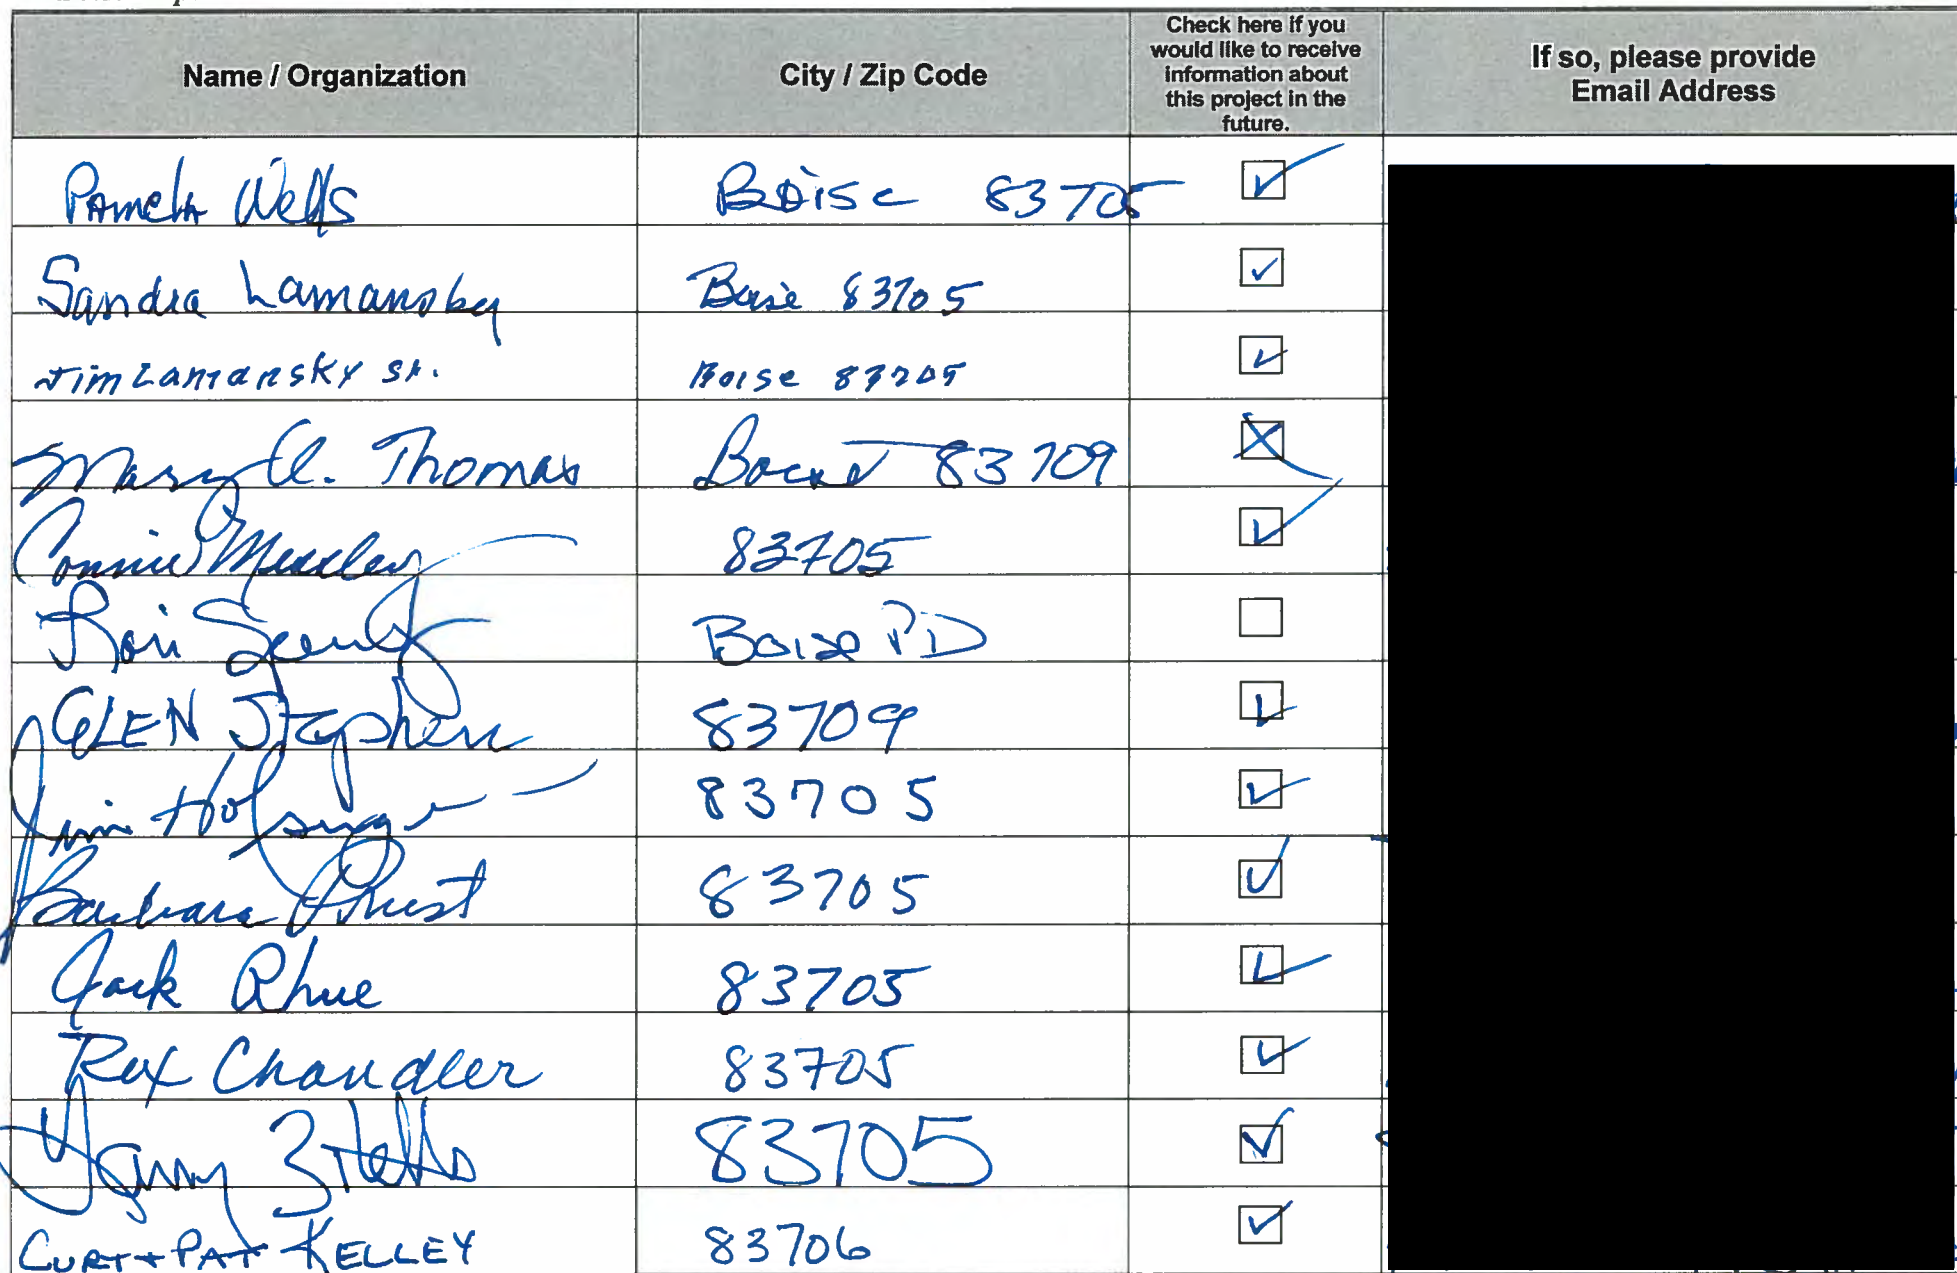 Name / Organization
City / Zip Code
Check here if you
would like to receive
information about
this project in the
future.
If so, please provide
Email Address
Pamela Wells Boise 83705
Sandra Lamansky Boise 83705
Jim Lamansky Sr. Boise 83705
Mary A. Thomas 83709
Connie 83705
Lori Boise PD
GLEN Stephen 83709
Jim 83705
Barbara 83705
Jack Rhue 83705
Rex Chandler 83705
83705
CURT + PAT KELLEY 83706